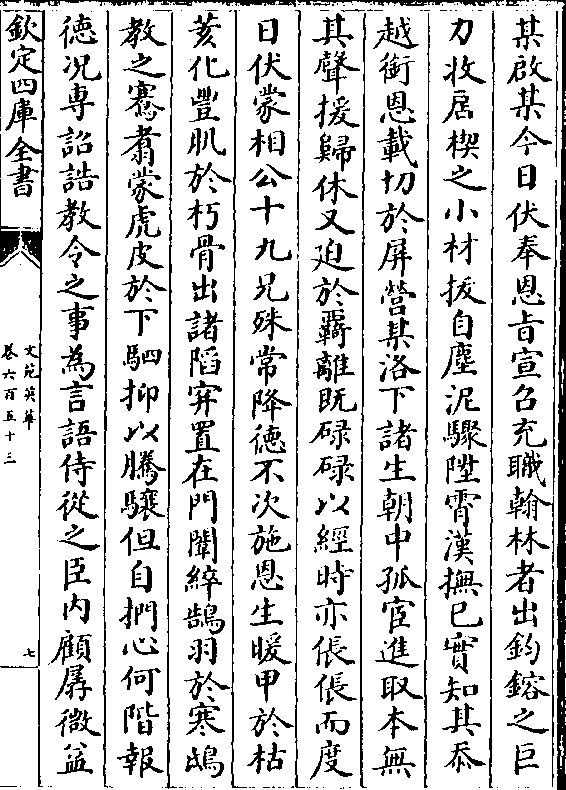 某啟某今日伏奉恩旨宣召充職翰林者出鈞鎔之巨
力收居楔之小材拔自塵泥驟陞霄漢撫已實知其忝
越銜恩載切於屏營某洛下諸生朝中孤宦進取本無
其聲援歸休又迫於羈離既碌碌以經時亦倀倀而度
日伏蒙相公十九兄殊常降德不次施恩生暖甲於枯
荄化豐肌於朽骨出諸䧟穽置在門闌綷鵠羽於寒鴟
教之騫翥蒙虎皮於下駟抑以騰驤但自捫心何階報
德况専詔誥教令之事為言語侍從之臣内顧孱微益
欽定四庫全書
文苑英華
卷六百五十三
七